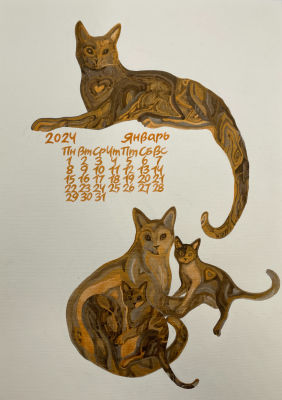 2024 Январь
Пн Вт Ср Чт Пт Сб Вс
1 2 3 4 5 6 7
8 9 10 11 12 13 14
15 16 17 18 19 20 21
22 23 24 25 26 27 28
29 30 31